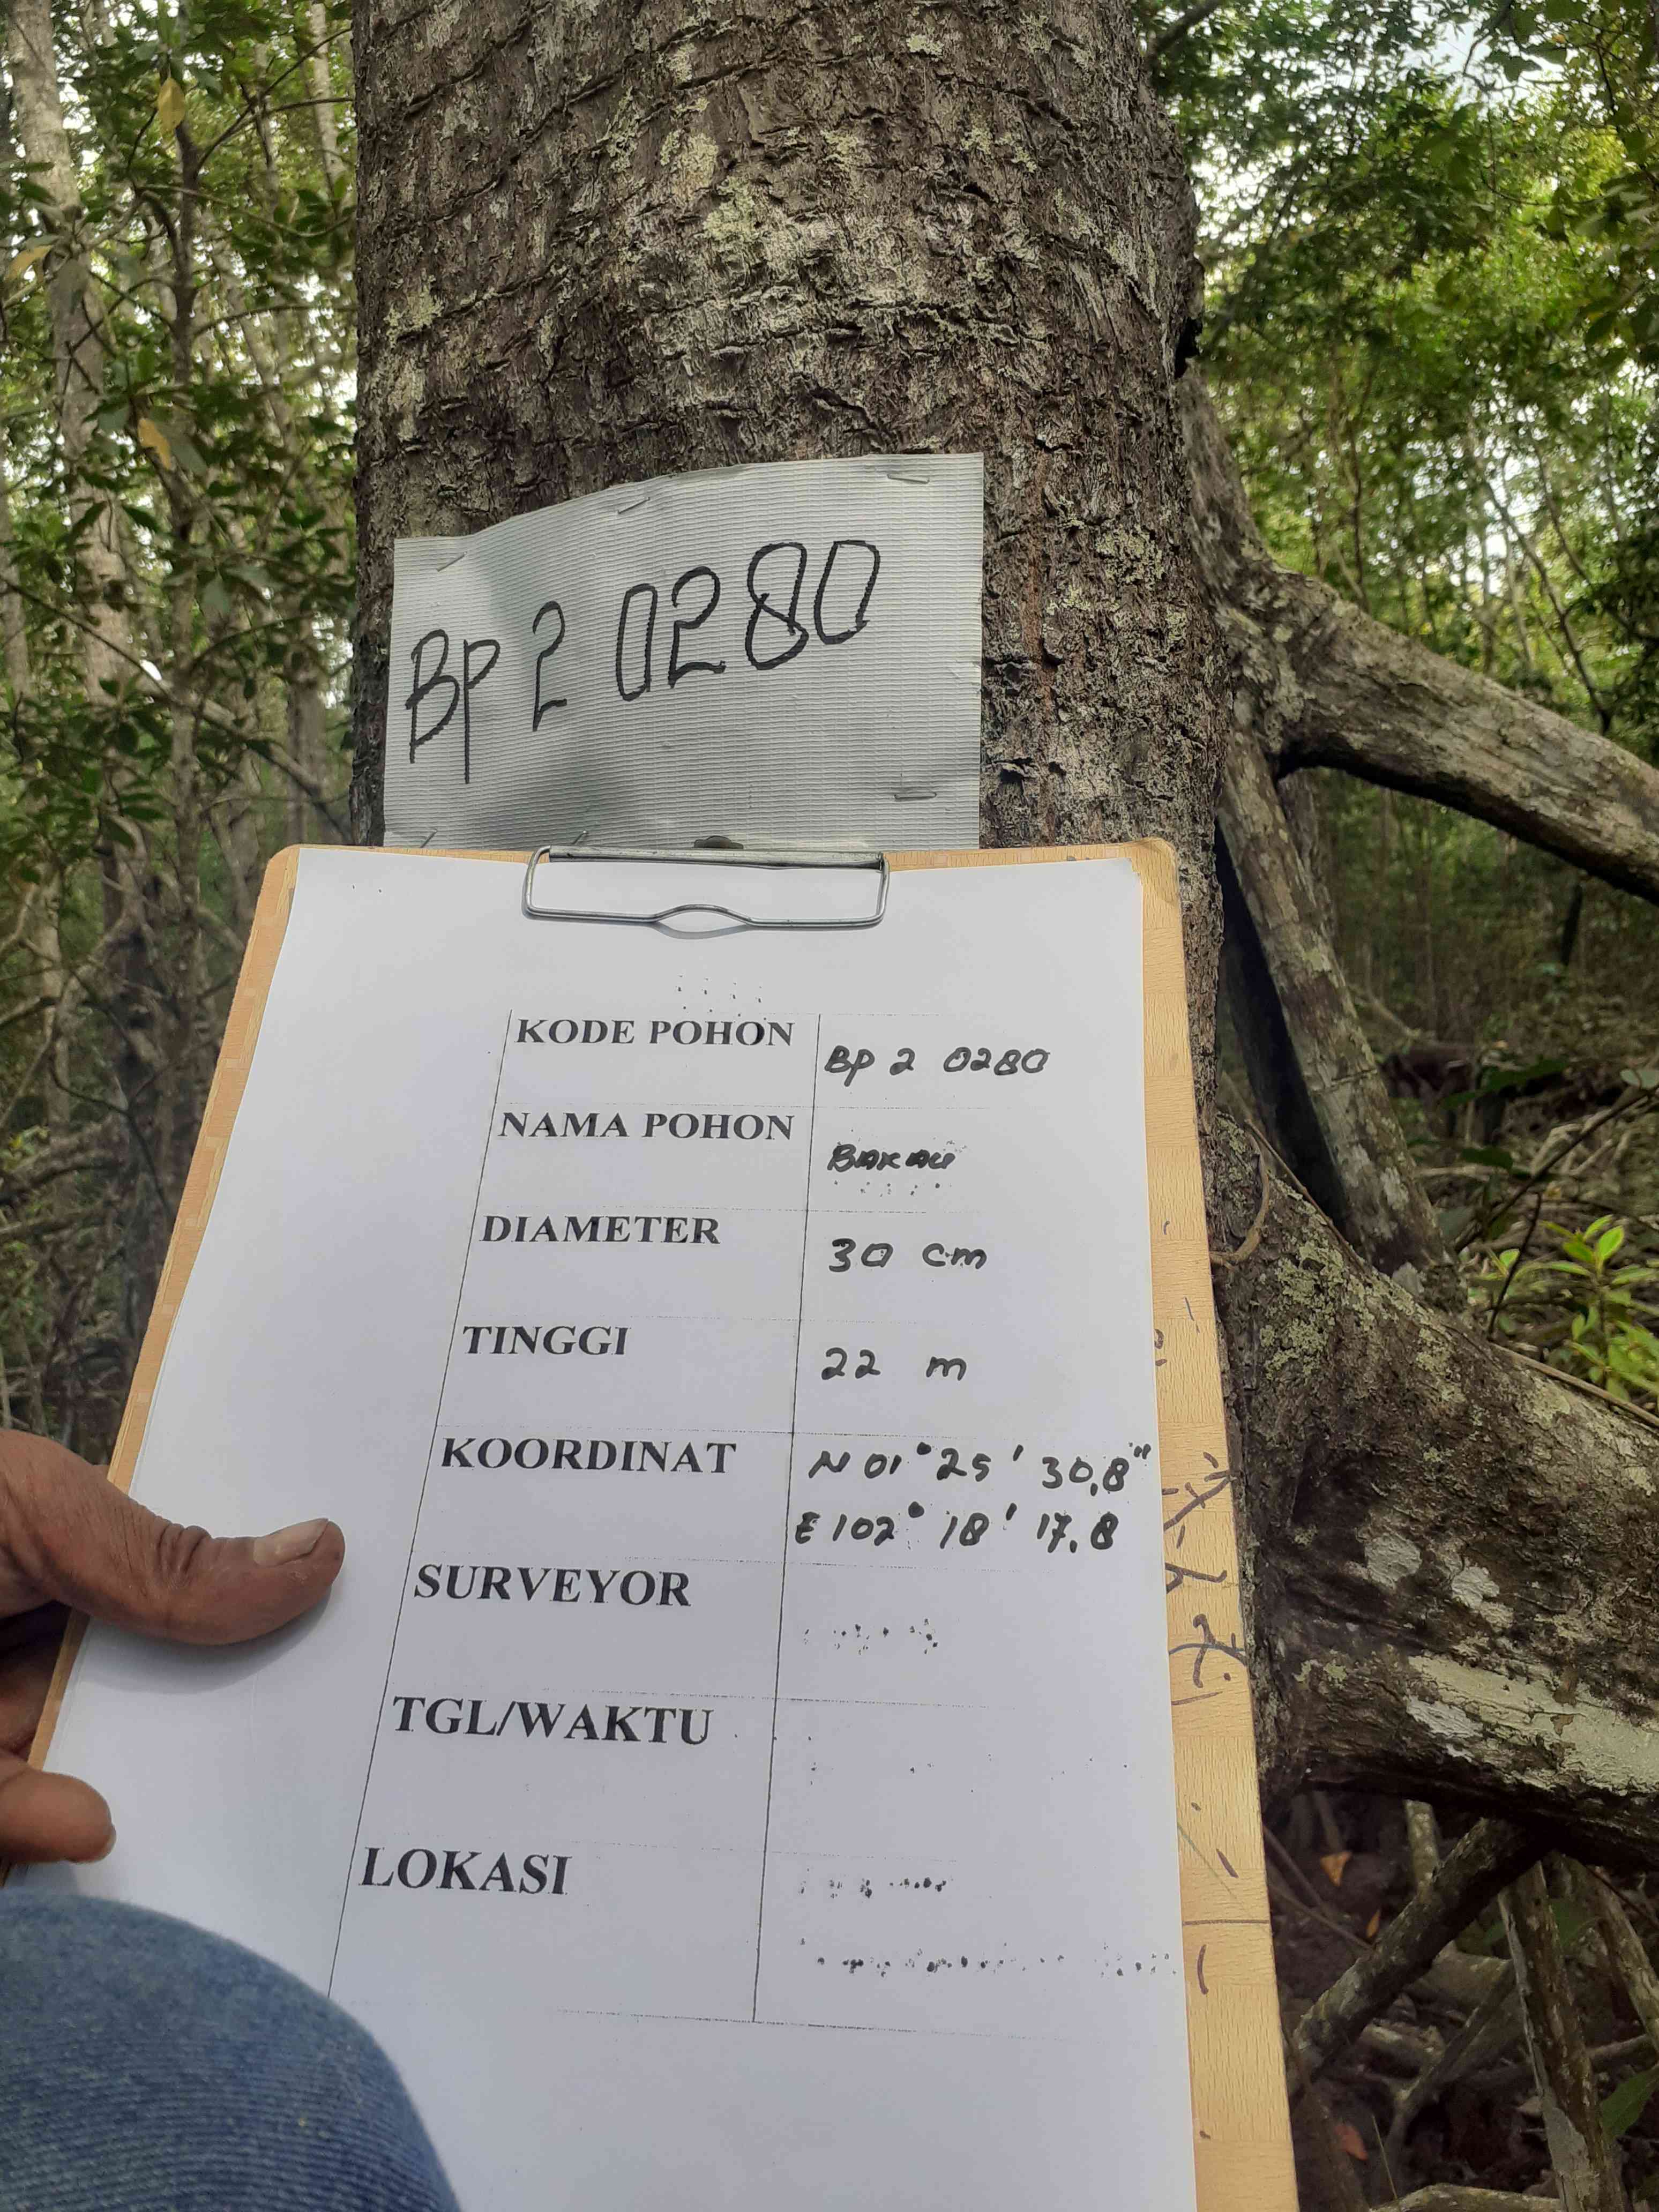 BP 2 0280
KODE POHON BP 2 0280
NAMA POHON BAKAU
DIAMETER 30 cm
TINGGI 22 m
KOORDINAT N 01° 25' 30,8"
E 102° 18' 17.8
SURVEYOR
TGL/WAKTU
LOKASI